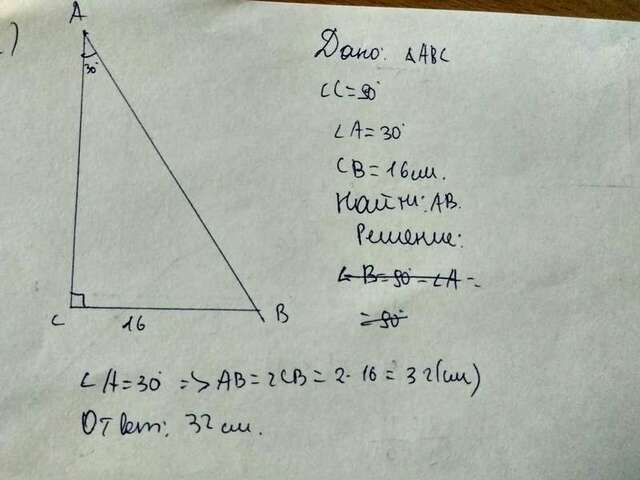 )
A
30°
C
16
B
Дано: △ABC
∠C=90°
∠A=30°
CB=16см.
Найти: AB.
Решение:
∠B=90°-∠A=
=90°
∠A=30° => AB=2CB=2·16=32(см)
Ответ: 32см.